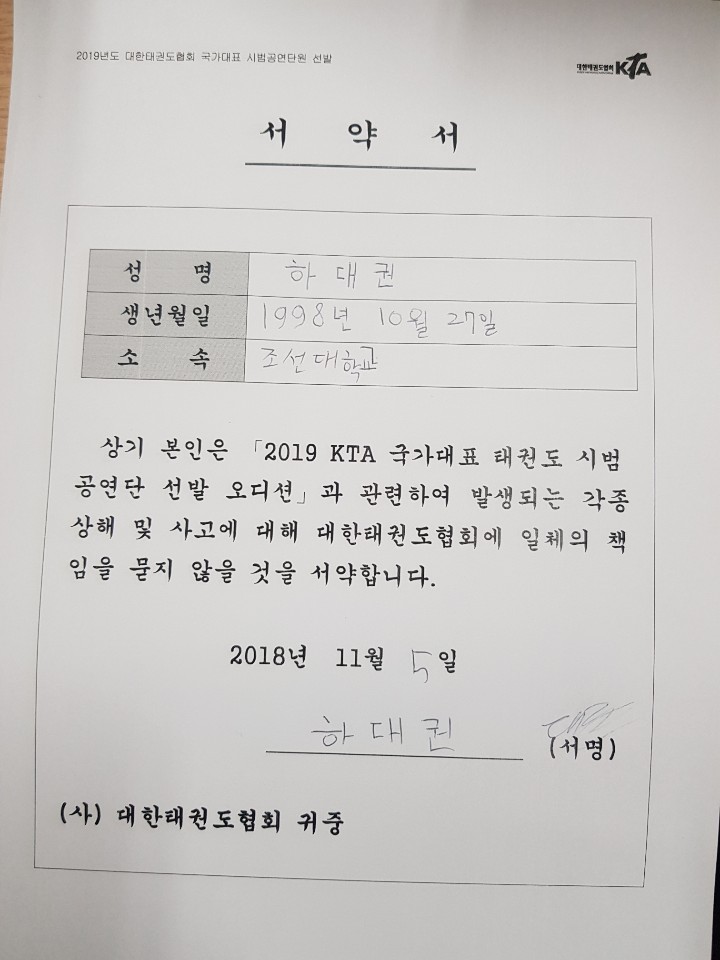 2019년도 대한태권도협회 국가대표 시범공연단원 선발
대한태권도협회 KTA
서 약 서
성 명 하대권
생년월일 1998년 10월 27일
소 속 조선대학교
상기 본인은 「2019 KTA 국가대표 태권도 시범
공연단 선발 오디션」과 관련하여 발생되는 각종
상해 및 사고에 대해 대한태권도협회에 일체의 책
임을 묻지 않을 것을 서약합니다.
2018년 11월 5일
하대권 (서명)
(사) 대한태권도협회 귀중